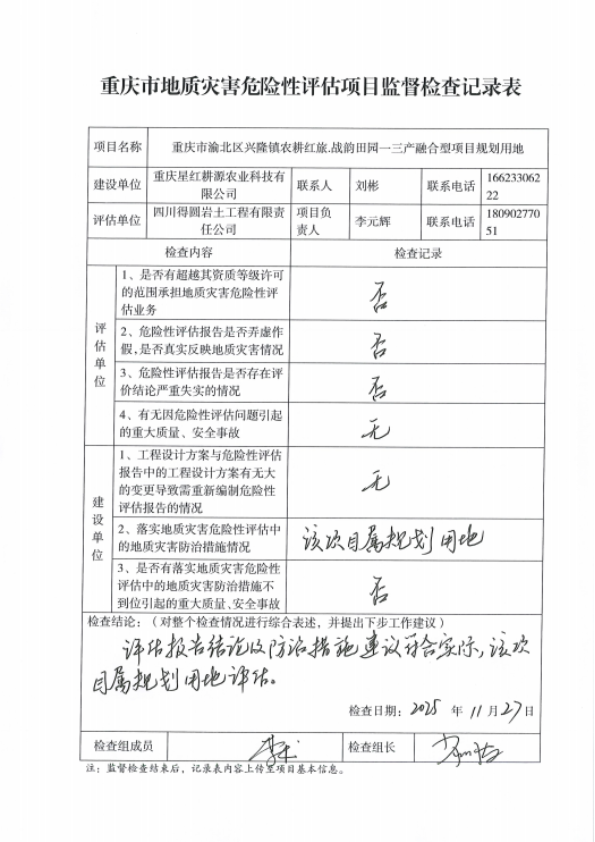 重庆市地质灾害危险性评估项目监督检查记录表
项目名称 重庆市渝北区兴隆镇农耕红旅.战韵田园一三产融合型项目规划用地
建设单位 重庆星红耕源农业科技有限公司 联系人 刘彬 联系电话 16623306222
评估单位 四川得圆岩土工程有限责任公司 项目负责人 李元辉 联系电话 18090277051
检查内容 检查记录
评估单位
1、是否有超越其资质等级许可
的范围承担地质灾害危险性评
估业务
否
2、危险性评估报告是否弄虚作
假,是否真实反映地质灾害情况
否
3、危险性评估报告是否存在评
价结论严重失实的情况
否
4、有无因危险性评估问题引起
的重大质量、安全事故
无
建设单位
1、工程设计方案与危险性评估
报告中的工程设计方案有无大
的变更导致需重新编制危险性
评估报告的情况
无
2、落实地质灾害危险性评估中
的地质灾害防治措施情况
该项目属规划用地
3、是否有落实地质灾害危险性
评估中的地质灾害防治措施不
到位引起的重大质量、安全事故
否
检查结论:(对整个检查情况进行综合表述,并提出下步工作建议)
评估报告结论及防治措施建议符合实际,该项
目属规划用地评估。
检查日期: 2025 年 11 月 27 日
检查组成员 检查组长
注:监督检查结束后,记录表内容上传至项目基本信息。